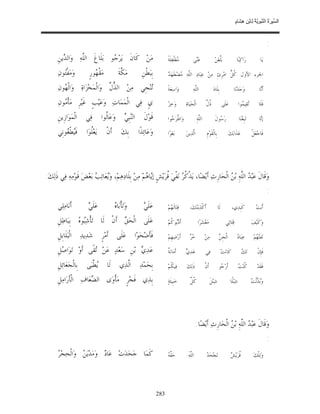 السّيرَة النّبويّة لابْن هشَام
:
يَا رَاكِبًا بَلِّغَنْ عَنِّي مُغَلْغَلَةً مَنْ كَانَ يَرْجُو بَلَاغَ اللَّهِ وَالدِّينِ
كُلُّ امْرِئٍ مِنْ عِبَادِ اللَّهِ مُضْطَهَدٌ بِبَطْنِ مَكَّةَ مَقْهُورٍ وَمَفْتُونِ
أَنَّا وَجَدْنَا بِلَادَ اللَّهِ وَاسِعَةً تُنْجِي مِنْ الذُّلِّ وَالْمَخْزَاةِ وَالْهُونِ
فَلَا تُقِيمُوا عَلَى ذُلِّ الْحَيَاةِ وَخِزْيٍ فِي الْمَمَاتِ وَعَيْبٍ غَيْرِ مَأْمُونِ
إنَّا تَبِعْنَا رَسُولَ اللَّهِ وَاطَّرَحُوا قَوْلَ النَّبِيِّ وَعَالُوا فِي الْمَوَازِينِ
فَاجْعَلْ عَذَابَكَ بِالْقَوْمِ الَّذِينَ بَغَوْا وَعَائِذًا بِكَ أَنْ يَعْلُوا فَيُطْغُونِي
وَقَالَ عَبْدُ اللَّهِ بْنُ الْحَارِثِ أَيْضًا، يَذْكُرُ نَفْيَ قُرَيْشٍ إيَّاهُمْ مِنْ بِلَادِهِمْ، وَيُعَاتِبُ بَعْضَ قَوْمِهِ فِي ذَلِكَ
:
أَبَتْ كَبِدِي، لَا أَكْذِبَنْكَ، قِتَالَهُمْ عَلَيَّ وَتَأْبَاهُ عَلَيَّ أَنَامِلِي
وَكَيْفَ قِتَالِي مَعْشَرًا أَدَّبُوكُمْ عَلَى الْحَقِّ أَنْ لَا تَأْشِبُوهُ بِبَاطِلِ
نَفَتْهُمْ عِبَادُ الْجِنِّ مِنْ حُرِّ أَرْضِهِمْ فَأَضْحَوْا عَلَى أَمْرٍ شَدِيدِ الْبَلَابِلِ
فَإِنْ تَكُ كَانَتْ فِي عَدِيٍّ أَمَانَةٌ عَدِيِّ بْنِ سَعْدٍ عَنْ تُقًى أَوْ تَوَاصُلِ
فَقَدْ كُنْتُ أَرْجُو أَنَّ ذَلِكَ فِيكُمْ بِحَمْدِ الَّذِي لَا يُطَّبَى بِالْجَعَائِلِ
وَبُدِّلْتُ شِبْلًا شِبْلَ كُلِّ خَبِيثَةٍ بِذِي فَجْرٍ مَأْوَى الضِّعَافِ الْأَرَامِلِ
وَقَالَ عَبْدُ اللَّهِ بْنُ الْحَارِثِ أَيْضًا.
:
وَتِلْكَ قُرَيْشٌ تَجْحَدُ اللَّهَ حَقَّهُ كَمَا جَحَدَتْ عَادٌ وَمَدْيَنُ وَالْحِجْرُ
283